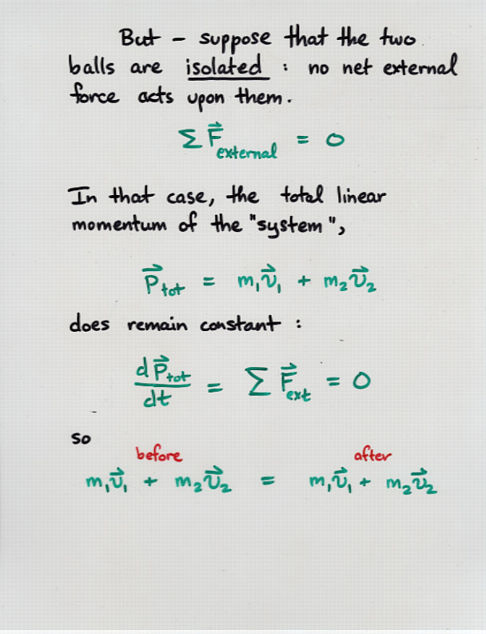 But - suppose that the two
balls are isolated : no net external
force acts upon them.
Σ F⃗ external = 0
In that case, the total linear
momentum of the "system",
P⃗ tot = m₁v⃗₁ + m₂v⃗₂
does remain constant :
dP⃗tot/dt = Σ F⃗ext = 0
so
before after
m₁v⃗₁ + m₂v⃗₂ = m₁v⃗₁ + m₂v⃗₂